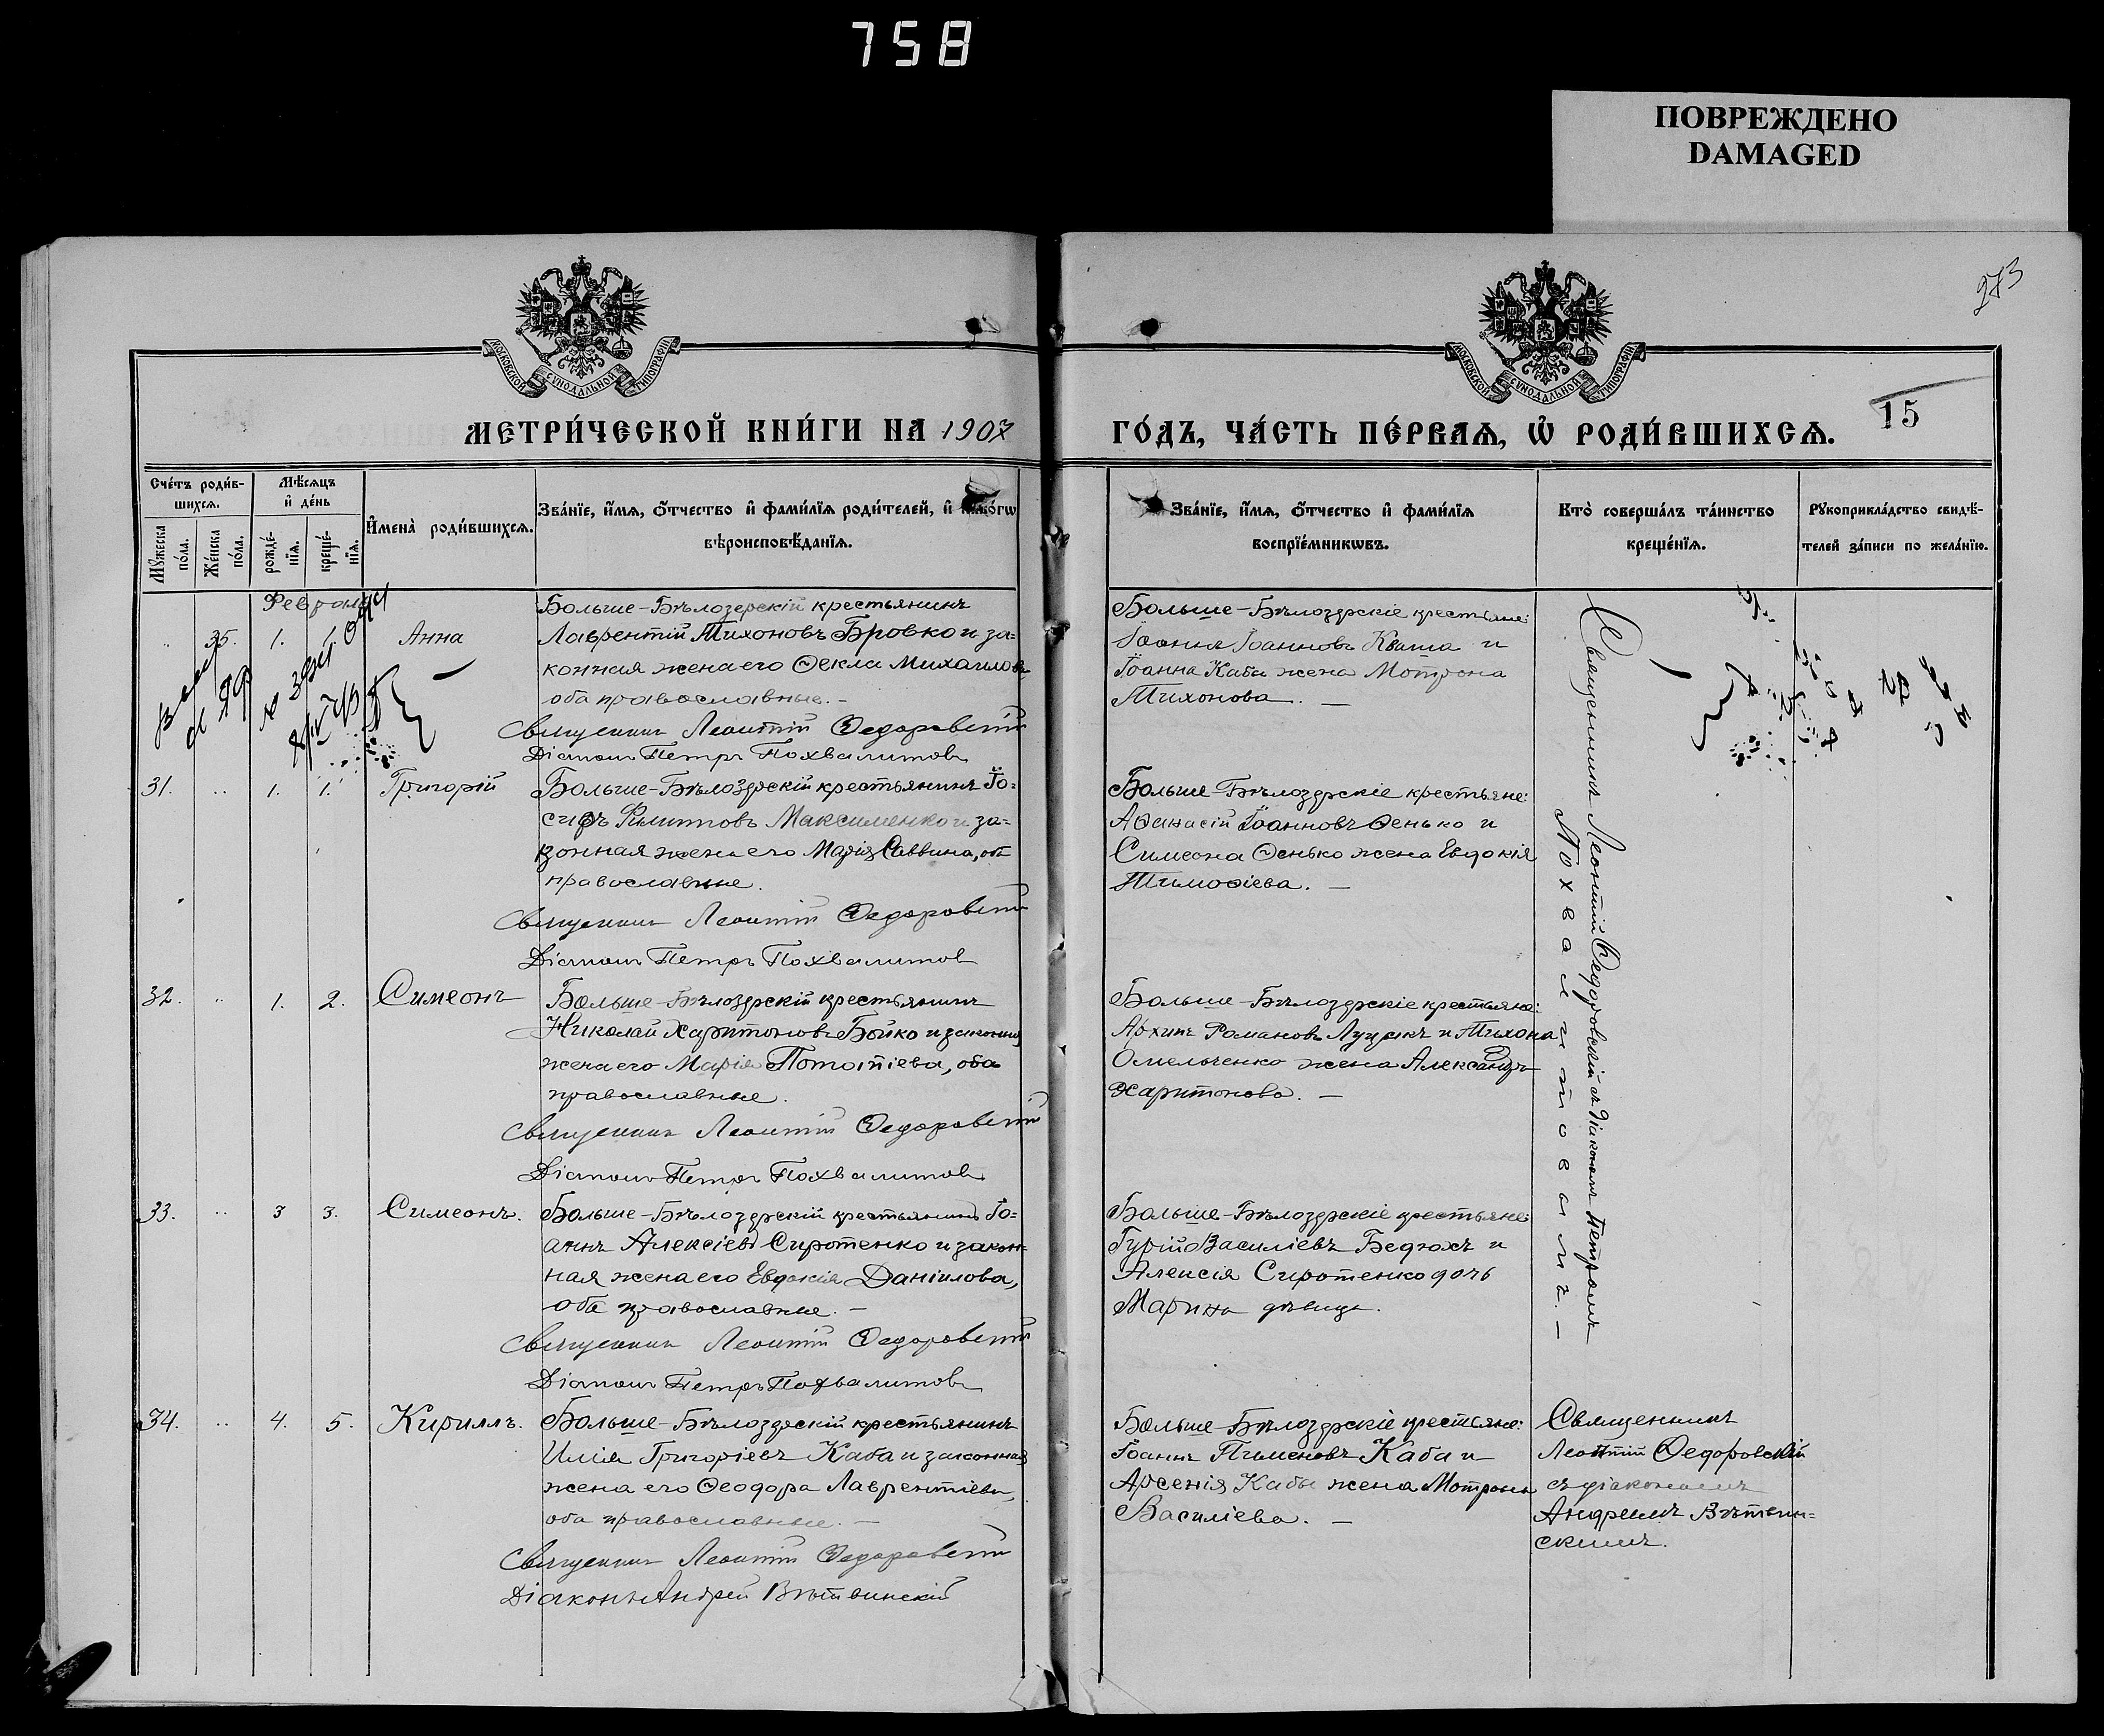 758
ПОВРЕЖДЕНО
DAMAGED
273
МОСКОВСКОЙ СУНОДАЛЬНОЙ ТИПОГРАФІИ
МОСКОВСКОЙ СУНОДАЛЬНОЙ ТИПОГРАФІИ
15
МЕТРИ́ЧЕСКОЙ КНИ́ГИ НА 1907
ГО́ДЪ, ЧА́СТЬ ПЕ́РВАѦ, Ѡ РОДИ́ВШИХСѦ.
Сче́тъ роди́в-
шихсѧ.
Мꙋжеска по́ла.
Же́нска по́ла.
Мѣ́сѧцъ
и҆ де́нь
рожде́-
нїѧ.
креще́-
нїѧ.
И҆мена̀ роди́вшихсѧ.
Зва́нїе, и҆́мѧ, ѻ҆́тчество и҆ фами́лїѧ роди́телей, и҆ како́гѡ
вѣроисповѣ́данїѧ.
Зва́нїе, и҆́мѧ, ѻ҆́тчество и҆ фами́лїѧ
воспрїе́мникѡвъ.
Кто̀ соверша́лъ та́инство
креще́нїѧ.
Рꙋкоприкла́дство свидѣ́-
телей за́писи по жела́нїю.
Февраль
35. 1. 1. Анна
Больше-Бѣлозерскій крестьянинъ
Лаврентій Тихоновъ Бровко и за-
конная жена его Ѳекла Михаилова
оба православные. –
Священникъ Леонтій Ѳедоровскій
Діаконъ Петръ Похвалитовъ
Больше-Бѣлозерскіе крестьяне:
Іоаннъ Іоанновъ Кваша и
Іоанна Кабы жена Мотрона
Тихонова. –
31. 1. 1. Григорій
Больше-Бѣлозерскій крестьянинъ Іо-
сифъ Филипповъ Максименко и за-
конная жена его Марія Саввина, оба
православные.
Священникъ Леонтій Ѳедоровскій
Діаконъ Петръ Похвалитовъ
Больше-Бѣлозерскіе крестьяне:
Аѳанасій Іоанновъ Ѳенько и
Симеона Ѳенько жена Евдокія
Тимоѳіева. –
32. 1. 2. Симеонъ
Больше-Бѣлозерскій крестьянинъ
Николай Харитоновъ Бойко и законная
жена его Марія Потапіева, оба
православные.
Священникъ Леонтій Ѳедоровскій
Діаконъ Петръ Похвалитовъ
Больше-Бѣлозерскіе крестьяне:
Архипъ Романовъ Луцикъ и Тихона
Омельченко жена Александра
Харитонова. –
33. 3 3. Симеонъ.
Больше-Бѣлозерскій крестьянинъ Іо-
аннъ Алексіевъ Сиротенко и закон-
ная жена его Евдокія Даніилова,
оба православные. –
Священникъ Леонтій Ѳедоровскій
Діаконъ Петръ Похвалитовъ
Больше-Бѣлозерскіе крестьяне:
Гурій Василіевъ Бедюхъ и
Алексія Сиротенко дочь
Марина дѣвица.
Священникъ Леонтій Ѳедоровскій съ діакономъ Петромъ
Похвалитовымъ. –
34. 4. 5. Кириллъ.
Больше-Бѣлозерскій крестьянинъ
Илія Григоріевъ Каба и законная
жена его Ѳеодора Лаврентіева,
оба православные. –
Священникъ Леонтій Ѳедоровскій
Діаконъ Андрей Вѣтвинскій
Больше-Бѣлозерскіе крестьяне:
Іоаннъ Пименовъ Каба и
Арсенія Кабы жена Мотрона
Василіева. –
Священникъ
Леонтій Ѳедоровскій
съ діакономъ
Андреемъ Вѣтвин-
скимъ.